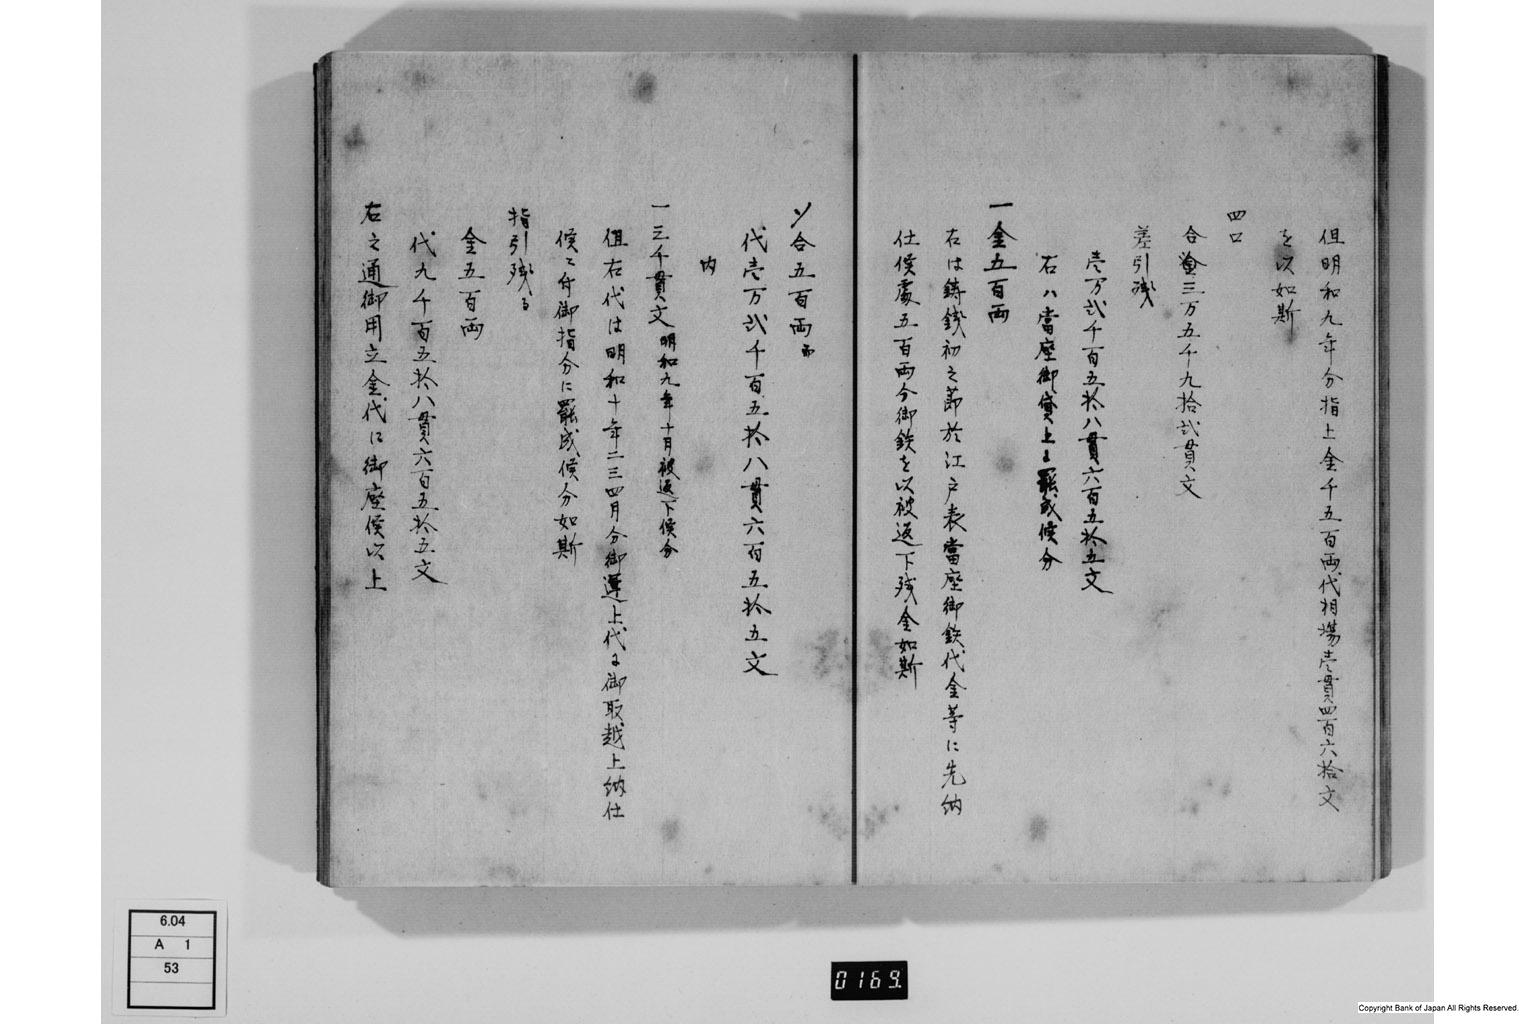 但明和九年分指上金千五百両代相場壱貫四百六拾文
を以如斯
四口
合三万五千九拾弐貫文
差引残
壱万弐千百五拾八貫六百五拾五文
右ハ當座御貸上ニ罷成候分
一金五百両
右は鋳銭初之節於江戸表當座御鉄代金等に先納
仕候處五百両分御鉄を以被返下残金如斯
〆合五百両
代壱万弐千百五拾八貫六百五拾五文
内
一三千貫文 明和九年十月被返下候分
但右代は明和十年二三四月分御運上代に御取越上納仕
候ニ付御指分に罷成候分如斯
指引残る
金五百両
代九千百五拾八貫六百五拾五文
右之通御用立金代に御座候以上
6.04
A 1
53
0169
Copyright Bank of Japan All Rights Reserved.